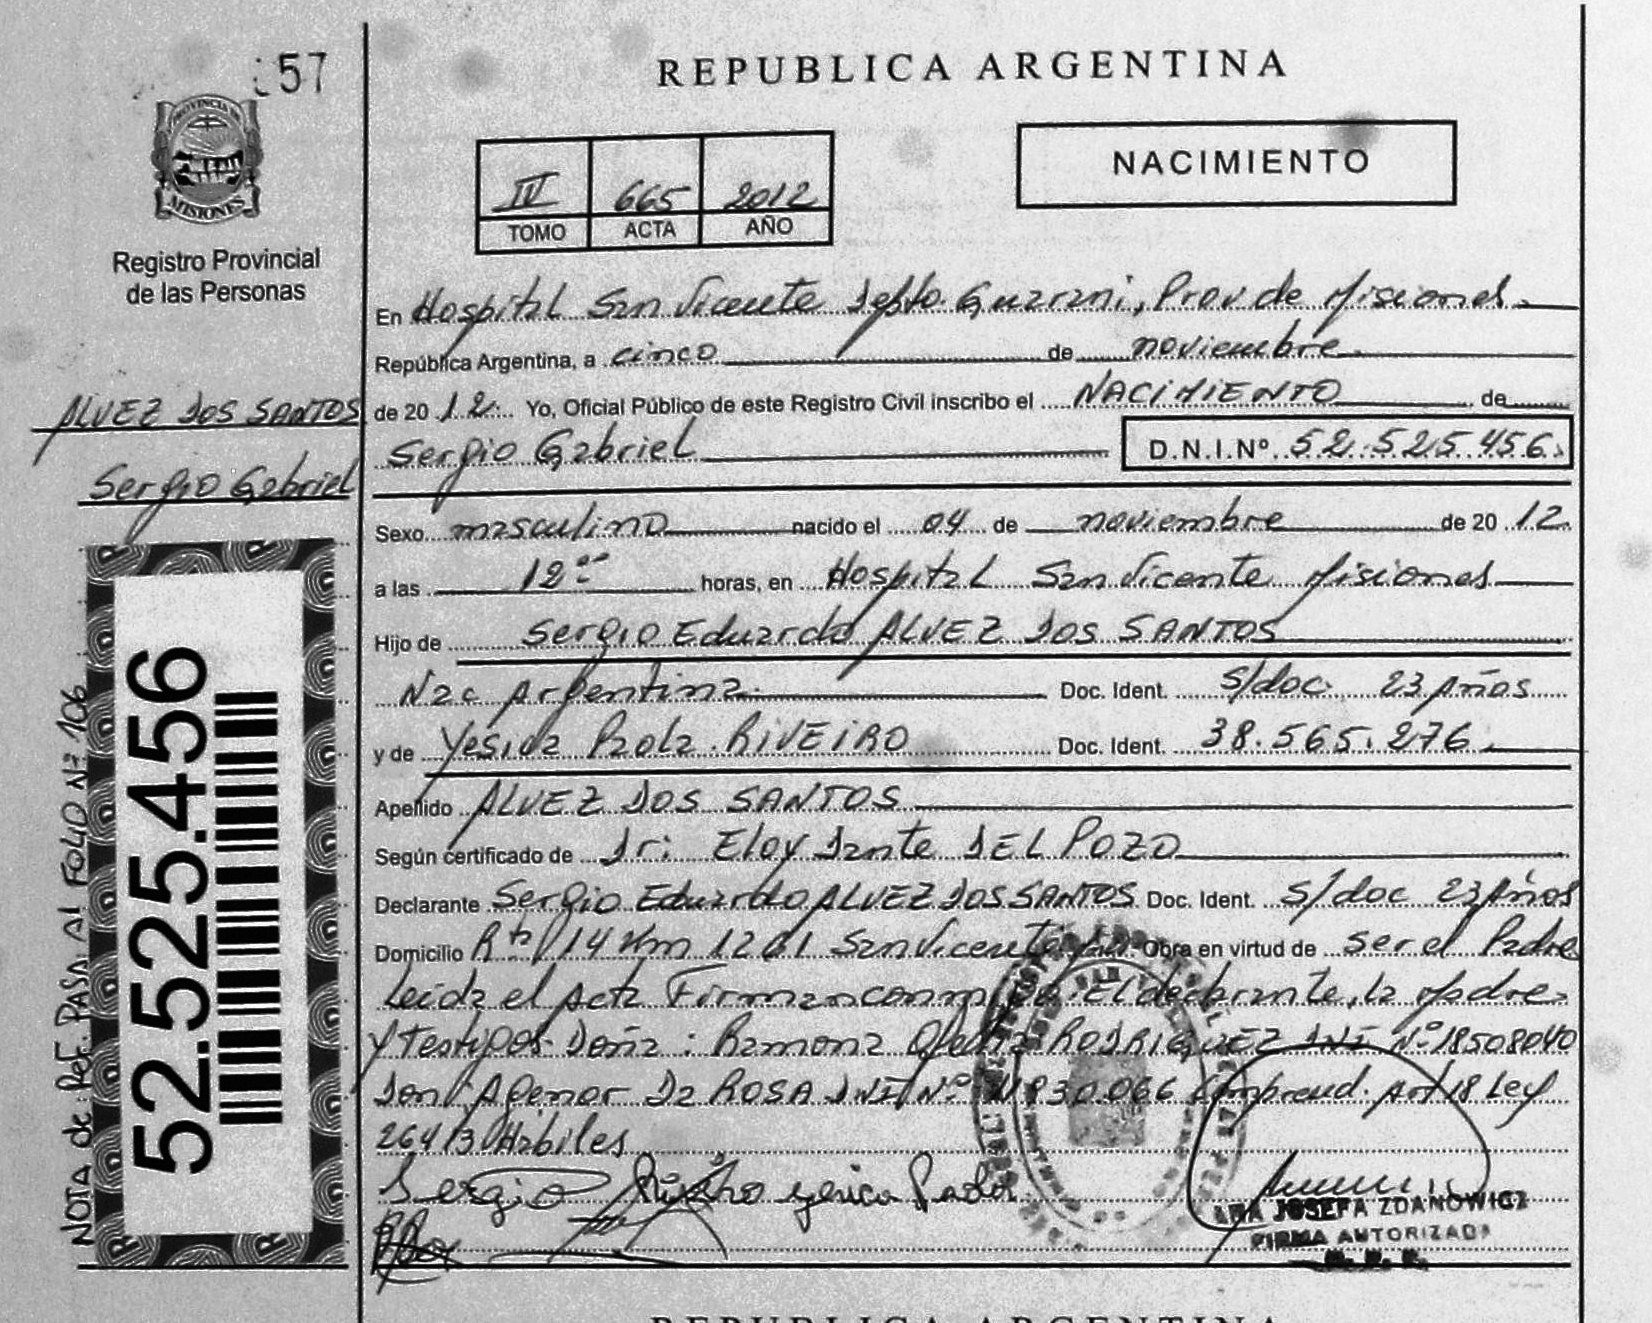 57
PROVINCIA DE
MISIONES
Registro Provincial
de las Personas
ALVEZ DOS SANTOS
Sergio Gabriel
NOTA de Ref. PASA Al FOLIO Nº 106
52.525.456
REPUBLICA ARGENTINA
IV 665 2012
TOMO ACTA AÑO
NACIMIENTO
En Hospital San Vicente Depto. Guarani, Prov de Misiones
República Argentina, a cinco de noviembre
de 2012 Yo, Oficial Público de este Registro Civil inscribo el NACIMIENTO de
Sergio Gabriel D.N.I.Nº 52.525.456
Sexo masculino nacido el 04 de noviembre de 2012
a las 12 horas, en Hospital San Vicente Misiones
Hijo de Sergio Eduardo ALVEZ DOS SANTOS
Nac Argentina Doc. Ident. S/doc 23 Años
y de Yesica Paola RIVEIRO Doc. Ident. 38.565.276
Apellido ALVEZ DOS SANTOS
Según certificado de Dr: Eloy Dante DEL POZO
Declarante Sergio Eduardo ALVEZ DOS SANTOS Doc. Ident. S/doc 23 Años
Domicilio Rta 14 Km 1261 San Vicente Obra en virtud de ser el Padre
Leida el Acta Firman conmigo El declarante, la Madre
y Testigos Doña: Ramona RODRIGUEZ DNI Nº 18508040
Don Agenor Da ROSA DNI Nº Art 18 Ley
26413 Habiles
Sergio yesica Paola
ANA JOSEFA ZDANOWICZ
FIRMA AUTORIZADA
REPUBLICA ARGENTINA